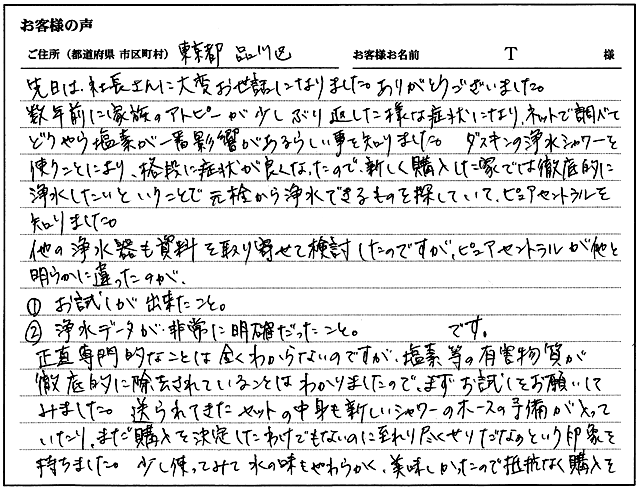 お客様の声
ご住所(都道府県 市区町村) 東京都 品川区 お客様お名前 T 様
先日は、社長さんに大変お世話になりました。ありがとうございました。
数年前に家族のアトピーが少しぶり返した様な症状になり、ネットで調べて
どうやら塩素が一番影響があるらしい事を知りました。 ダスキンの浄水シャワーを
使うことにより、格段に症状が良くなったので、新しく購入した家では徹底的に
浄水したいということで元栓から浄水できるものを探していて、ピュアセントラルを
知りました。
他の浄水器も資料を取り寄せて検討したのですが、ピュアセントラルが他と
明らかに違ったのが、
① お試しが出来たこと。
② 浄水データが非常に明確だったこと。 です。
正直専門的なことは全くわからないのですが、塩素等の有害物質が
徹底的に除去されていることはわかりましたので、まずお試しをお願いして
みました。 送られてきたセットの中身も新しいシャワーのホースの予備が入って
いたり、まだ購入を決定したわけでもないのに至れり尽くせりだなあという印象を
持ちました。 少し使ってみて水の味もやわらかく、美味しかったので抵抗なく購入を